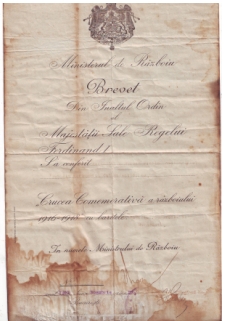 Ministerul de Războiu
Brevet
Din Înaltul Ordin
al
Majestăței Sale Regelui
Ferdinand I
S'a conferit
Crucea Comemorativă a războiului
1916-1918 cu baretele
În numele Ministrului de Războiu